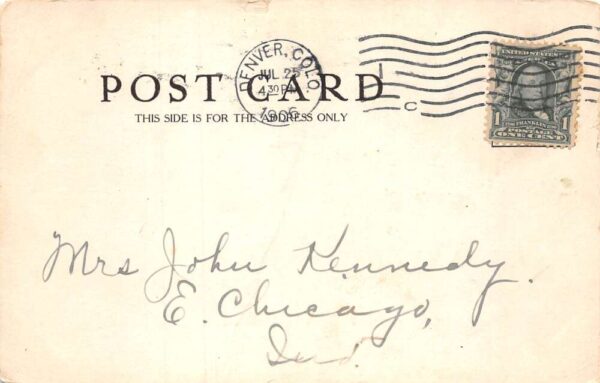 DENVER, COLO.
JUL 25
4 30 PM
1906
C
UNITED STATES
1
1
FRANKLIN
POSTAGE
ONE CENT
POST CARD
THIS SIDE IS FOR THE ADDRESS ONLY
Mrs John Kennedy.
E. Chicago,
Ind.